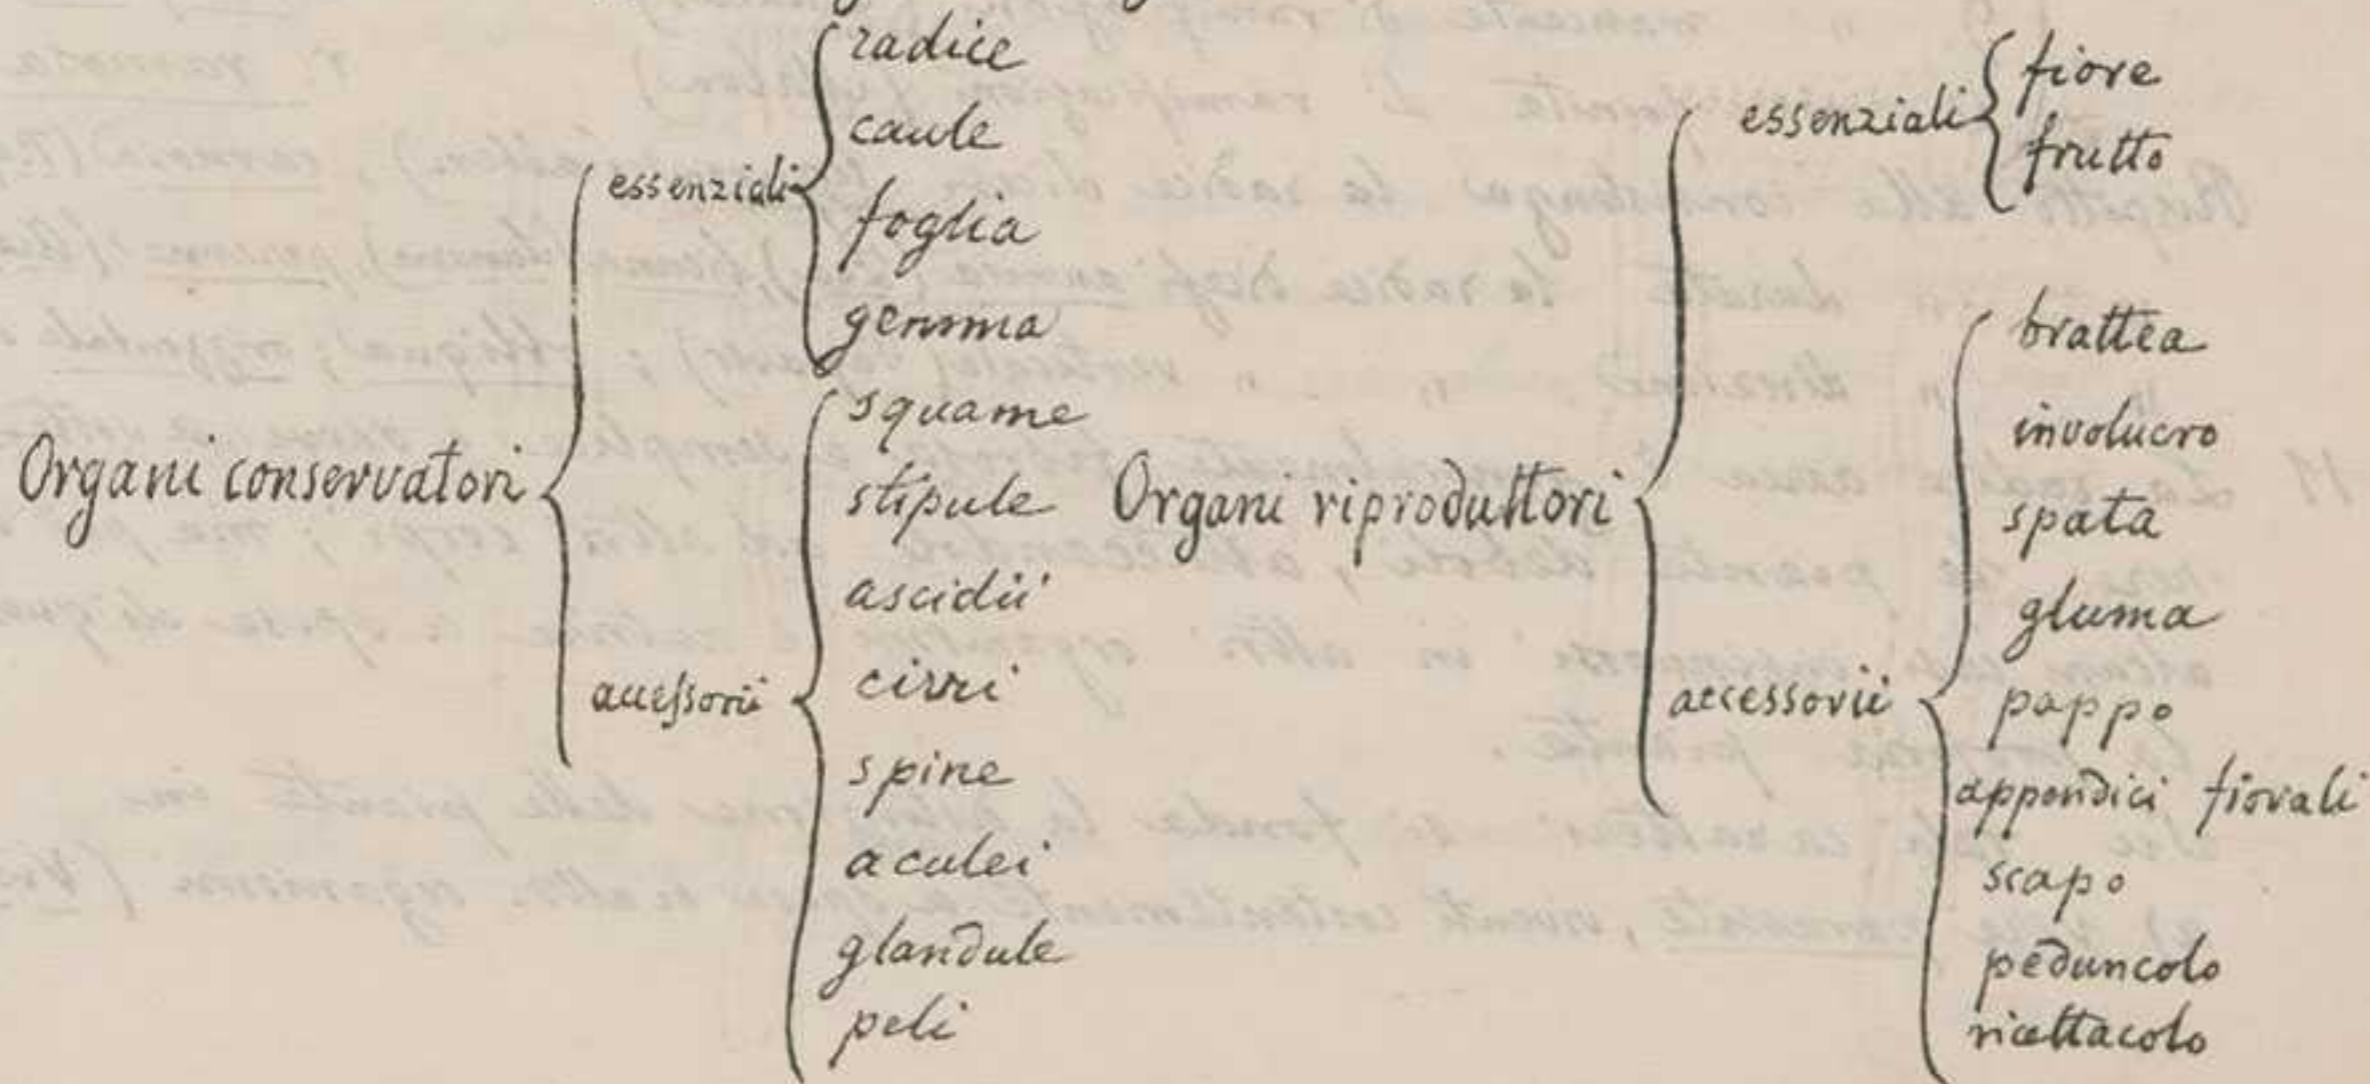 Organi conservatori
essenziali
radice
caule
foglia
gemma
accessorii
squame
stipule
ascidii
cirri
spine
aculei
glandule
peli
Organi riproduttori
essenziali
fiore
frutto
accessorii
brattea
involucro
spata
gluma
pappo
appendici fiorali
scapo
peduncolo
ricettacolo